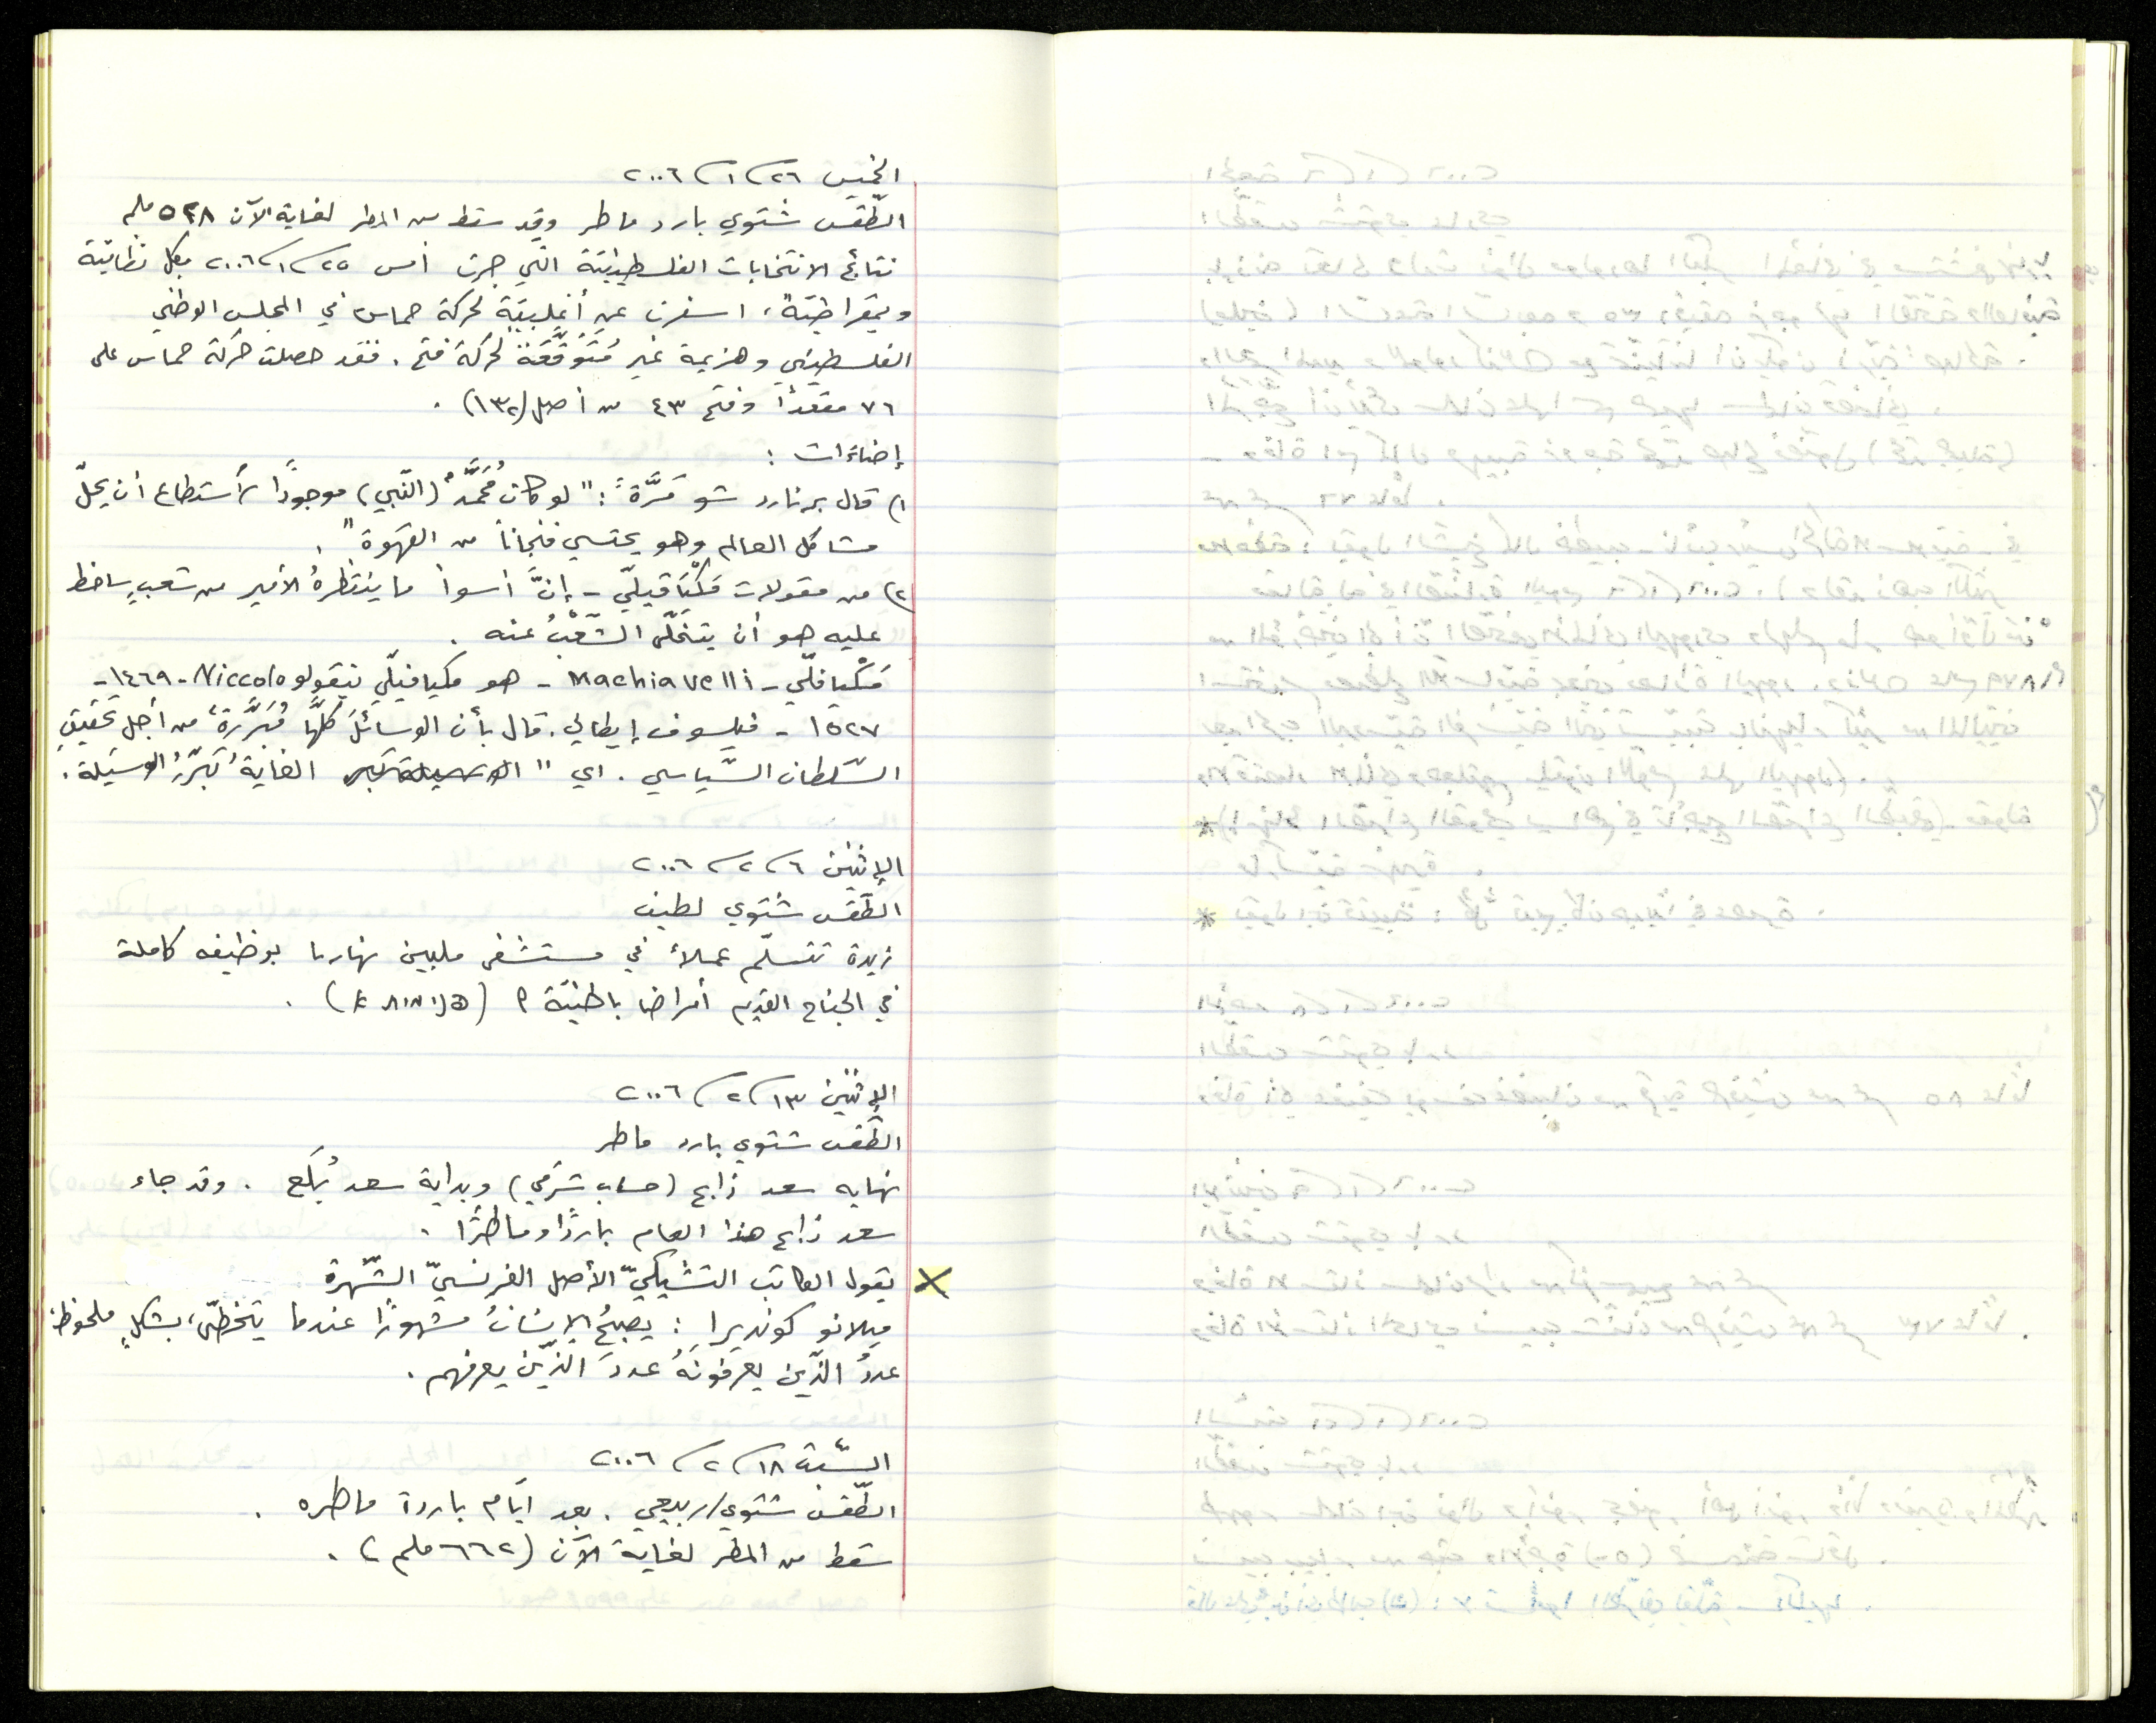 الخميس ٢٦/١/٢٠٠٦
الطّقس شتوي بارد ماطر وقد سقط من المطر لغاية الآن ٥٢٨ ملم
نتائج الانتخابات الفلسطينيّة التي جرت أمس ٢٥/١/٢٠٠٦ بكل نظاميّة
وديمقراطيّة، اسفرت عن أغلبيّة لحركة حماس في المجلس الوطني
الفلسطيني وهزيمة غير مُتَوقَّعَة لحركة فتح. فقد حصلت حركة حماس على
٧٦ مقعداً وفتح ٤٣ من أصل (١٣٢).
إضاءات:
١) قال برنارد شو مَرَّة: "لو كان مُحَمَّدٌ (النّبي) موجودًا لأستطاع أن يحلّ
مشاكل العالم وهو يحتسي فنجاناً من القهوة".
٢) من مقولات مَكْيَاڤيلّي - إنَّ أسوأ ما ينتظرهُ الأمير من شعبٍ ساخط
عليه هو أن يتخلّى الشّعْبُ عنه.
مَكْيافلّي - Machiavelli - هو مكيافيلّي نيقولو Niccolo - ١٤٦٩ -
١٥٢٧ - فيلسوف إيطالي. قال بأن الوسائلَ كلَّها مُبَرَّرة، من أجل تحقيقِ
السّلطان السّياسي. اي " الغايةُ تبرّرُ الوسيلة.
الإثنين ٦/٢/٢٠٠٦
الطّقس شتوي لطيف
زيدة تتسلّم عملاً في مستشفى ملبين نهاريا بوظيفه كاملة
في الجناح القديم أمراض باطنيّة
الإثنين ١٣/٢/٢٠٠٦
الطّقس شتوي بارد ماطر
نهايه سعد ذابح (حساب شرقي) وبداية سعد بُلَع. وقد جاء
سعد ذابح هذا العام باردًا وماطرًا.
يقول الكاتب التشيكيّ الأصل الفرنسيّ الشّهرة
ميلانو كونديرا: يصبحُ الإنسانُ مشهورًا عندما يتخطّى، بشكلٍ ملحوظ،
عددُ الذّين يعرفونَهُ عددَ الذّين يعرفهم.
السّبت ١٨/٢/٢٠٠٦
الطّقس شتوي/ربيعي. بعد ايّام باردة ماطره.
سقط من المطر لغاية الآن (٦٦٢ ملم).